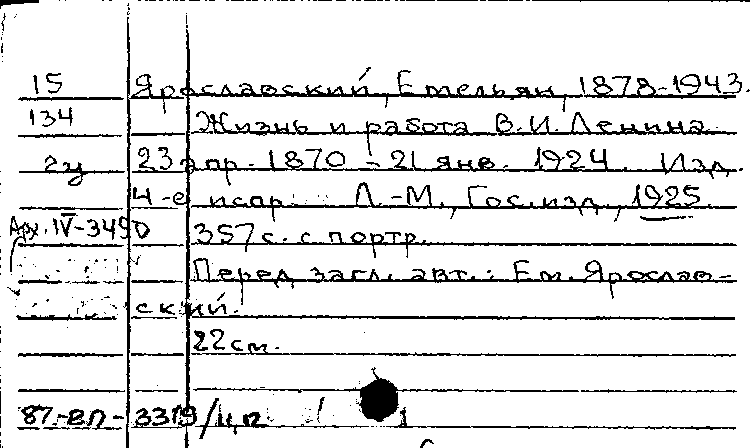 15 Ярославский, Емельян, 1878-1943.
134 Жизнь и работа В.И. Ленина
23 апр. 1870 - 21 янв. 1924. Изд.
4-е испр. Л.-М., Гос. изд., 1925.
Арх. IV-3490 357 с. с портр.
Перед загл. авт.: Ем. Ярослав-
ский.
22 см.
87-ВП-3319/цп 1